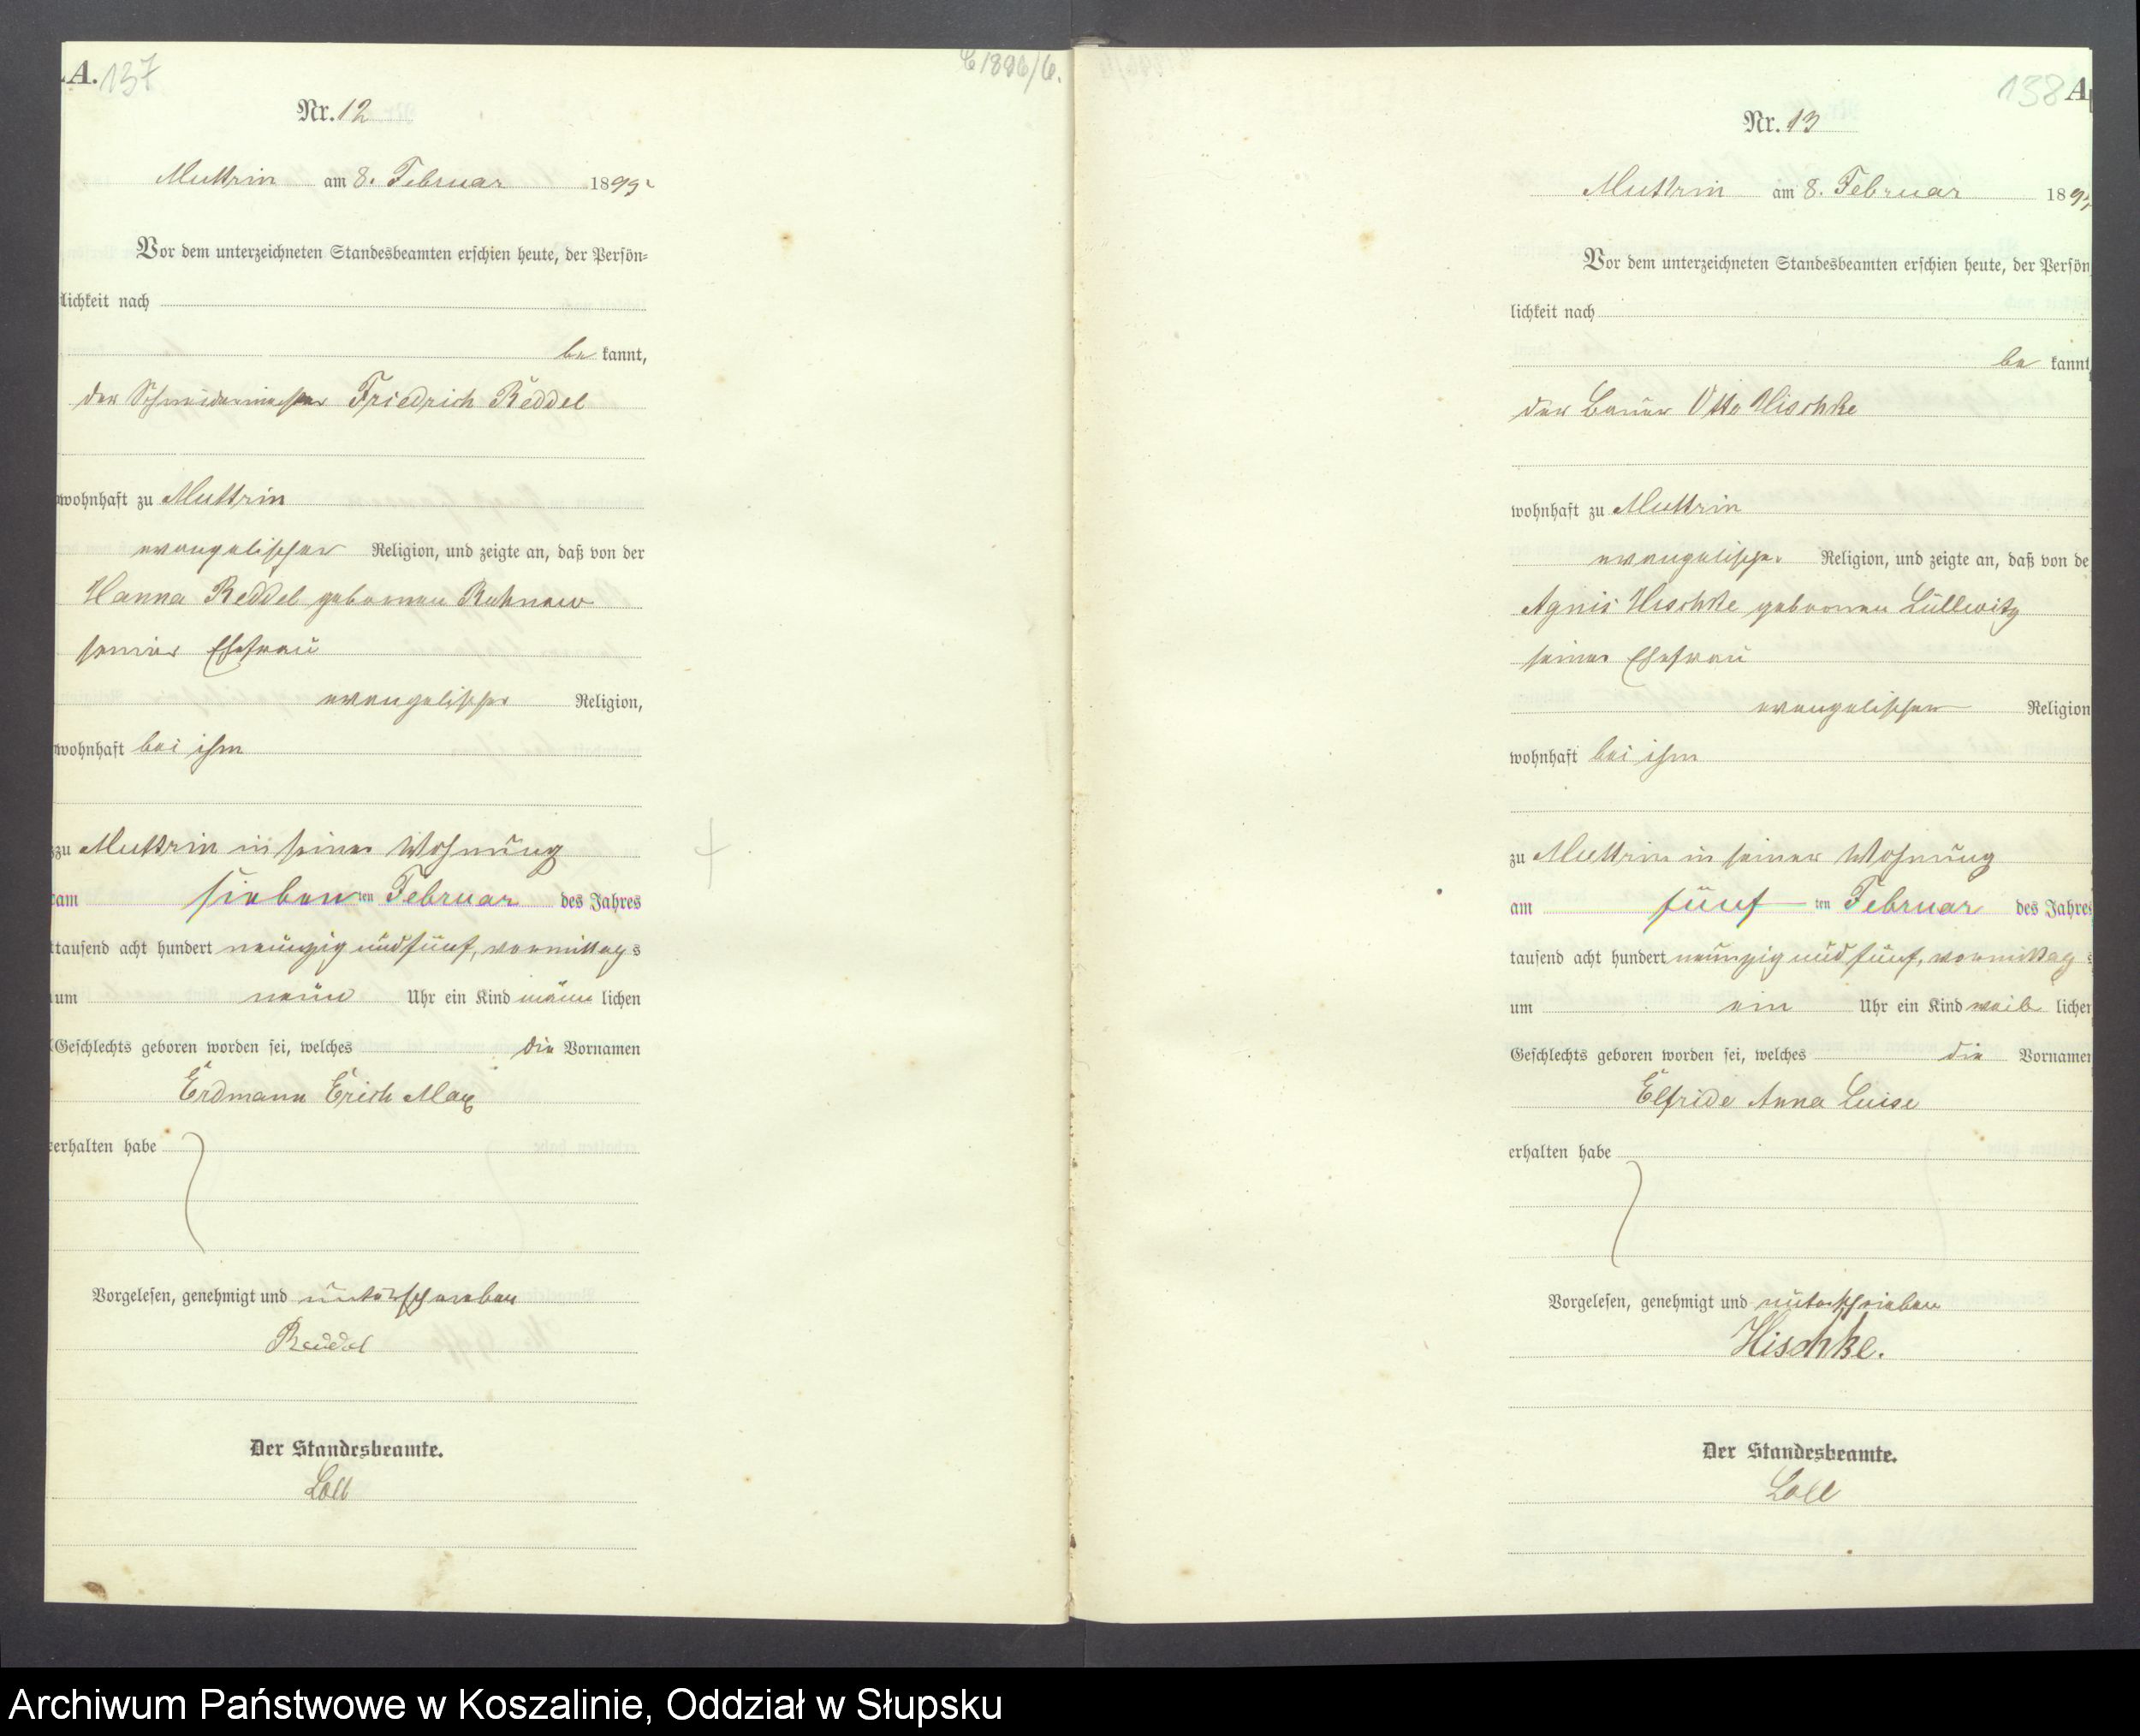 A. 137
C 1896/6.
Nr. 12
Muttrin am 8. Februar 1895
Vor dem unterzeichneten Standesbeamten erschien heute, der Persön-
lichkeit nach
be kannt,
der Schneidermeister Friedrich Reddel
wohnhaft zu Muttrin
evangelischer Religion, und zeigte an, daß von der
Hanna Reddel geborenen Ruhnow
seiner Ehefrau
evangelischer Religion,
wohnhaft bei ihm
zu Muttrin in seiner Wohnung
am sieben ten Februar des Jahres
tausend acht hundert neunzig und fünf, vormittags
um neun Uhr ein Kind männ lichen
Geschlechts geboren worden sei, welches die Vornamen
Erdmann Erich Max
erhalten habe
Vorgelesen, genehmigt und unterschrieben
Reddel
Der Standesbeamte.
Loll
138 A
Nr. 13
Muttrin am 8. Februar 1895
Vor dem unterzeichneten Standesbeamten erschien heute, der Persön
lichkeit nach
be kannt
der Bauer Otto Hischke
wohnhaft zu Muttrin
evangelischer Religion, und zeigte an, daß von de
Agnes Hischke geborenen Lüllwitz
seiner Ehefrau
evangelischer Religion
wohnhaft bei ihm
zu Muttrin in seiner Wohnung
am fünf ten Februar des Jahres
tausend acht hundert neunzig und fünf, vormittag s
um ein Uhr ein Kind weib lichen
Geschlechts geboren worden sei, welches die Vornamen
Elfride Anna Luise
erhalten habe
Vorgelesen, genehmigt und unterschrieben
Hischke.
Der Standesbeamte.
Loll
Archiwum Państwowe w Koszalinie, Oddział w Słupsku